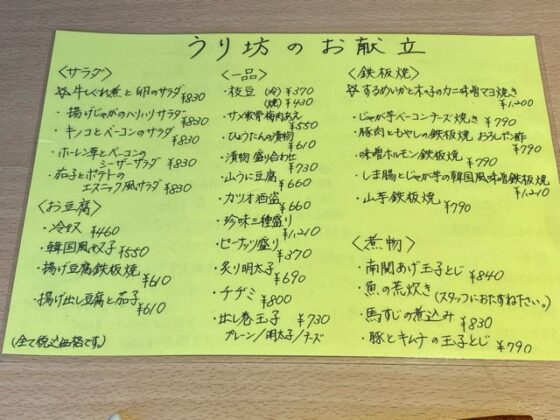 うり坊のお献立
〈サラダ〉
☆牛しぐれ煮と卵のサラダ
¥830
・揚げじゃがのハリハリサラダ
¥830
・キノコとベーコンのサラダ
¥830
・ホーレン草とベーコンの
シーザーサラダ ¥830
・茄子とポテトの
エスニック風サラダ ¥830
〈お豆腐〉
・冷奴 ¥460
・韓国風奴子 ¥550
・揚げ豆腐鉄板焼
¥610
・揚げ出し豆腐と茄子
¥610
(全て税込価格です。)
〈一品〉
・枝豆 (冷) ¥370
(焼) ¥430
・サメ軟骨梅肉あえ
¥550
・ひょうたんの漬物
¥610
・漬物 盛り合わせ
¥730
・山うに豆腐
¥660
・カツオ酒盗
¥660
・珍味三種盛り
¥1,210
・ピーナッツ盛り
¥370
・炙り明太子
¥690
・チヂミ ¥800
・出し巻玉子 ¥730
プレーン/明太子/チーズ
〈鉄板焼〉
☆するめいかと木の子のカニ味噌マヨ焼き
¥1,200
・じゃが芋ベーコンチーズ焼き ¥790
・豚肉ともやしの鉄板焼 おろしポン酢
¥790
・味噌ホルモン鉄板焼 ¥790
・しま腸とじゃが芋の韓国風味噌鉄板焼
¥1,210
・山芋鉄板焼 ¥790
〈煮物〉
・南関あげ玉子とじ ¥840
・魚の荒炊き (スタッフにおたずね下さい。)
・馬すじの煮込み ¥830
・豚とキムチの玉子とじ ¥790